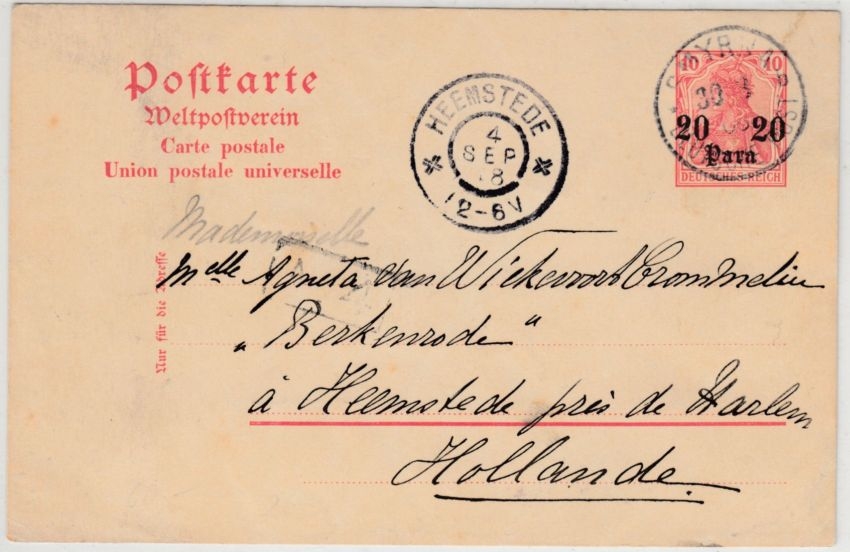 Postkarte
Weltpostverein
Carte postale
Union postale universelle
HEEMSTEDE
4
SEP
8
12-6V
SMYRNA
30
10 10
20 20
Para
DEUTSCHES REICH
Mademoiselle
Nur für die Adresse
Melle Agneta van Wickevoort Crommelin
„Berkenrode“
à Heemstede près de Harlem
Hollande